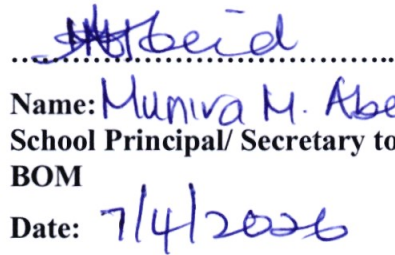 Name: Munira M. Abe
School Principal/ Secretary to
BOM
Date: 7/4/2026